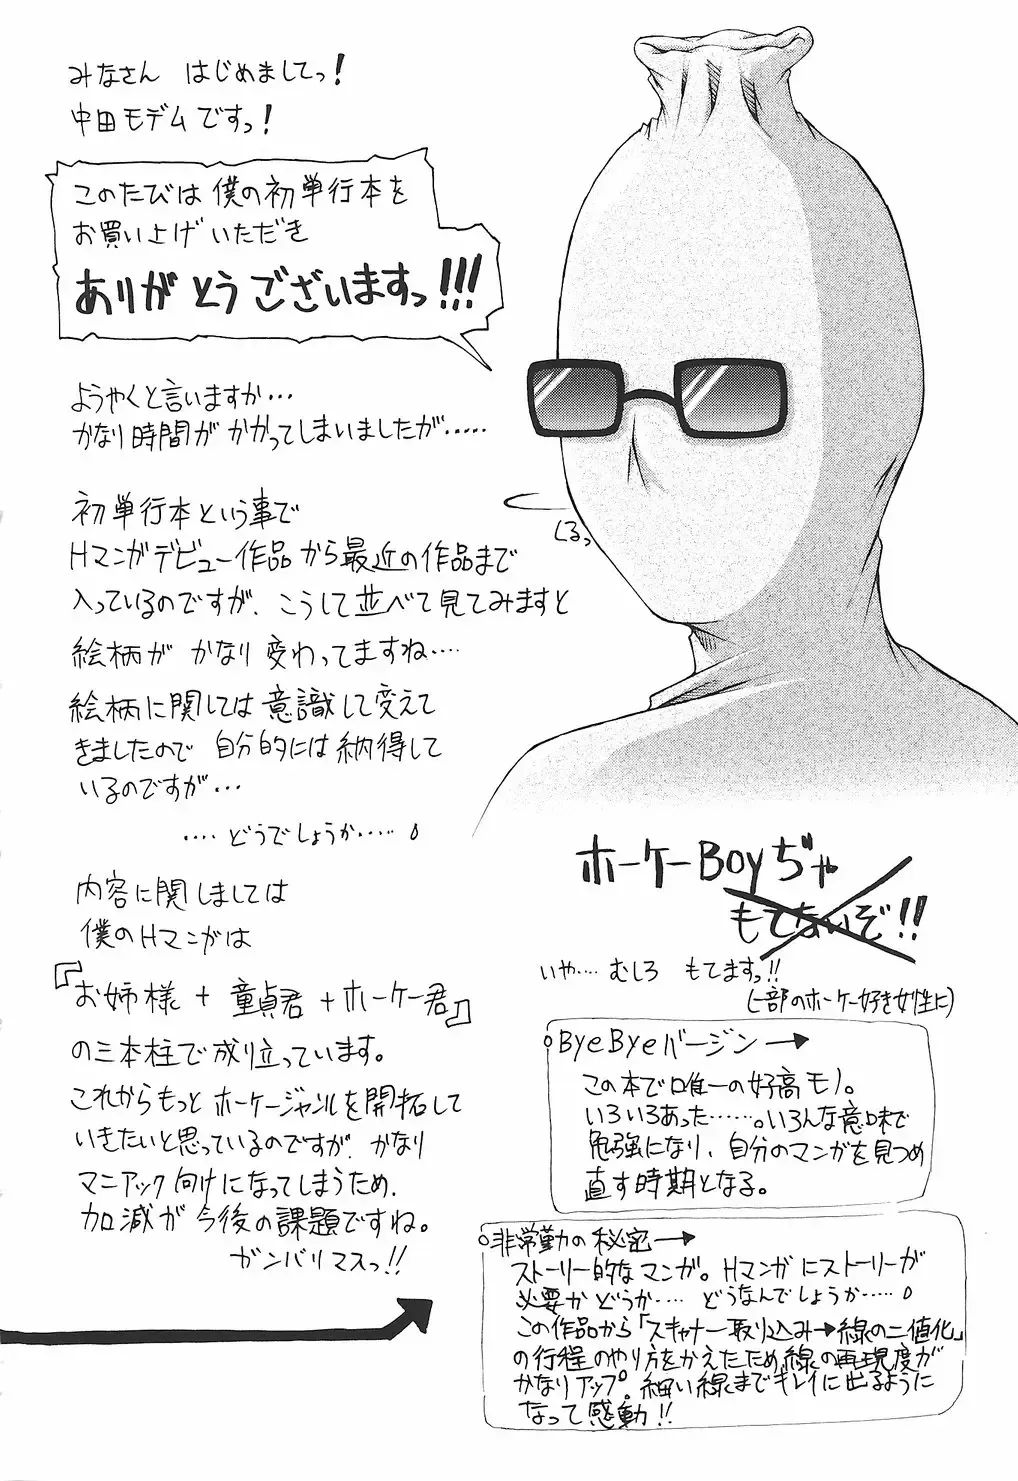 みなさん はじめましてっ!
中田モデムですっ!
このたびは僕の初単行本を
お買い上げいただき
ありがとうございますっ!!!
ようやくと言いますか…
かなり時間がかかってしまいましたが……
初単行本という事で
Hマンガデビュー作品から最近の作品まで
入っているのですが、こうして並べて見てみますと
絵柄が かなり変わってますね……
絵柄に関しては意識して変えて
きましたので 自分的には納得して
いるのですが…
……どうでしょうか……
内容に関しましては
僕のHマンガは
『お姉様+童貞君+ホーケー君』
の三本柱で成り立っています。
これからもっとホーケージャンルを開拓して
いきたいと思っているのですが、かなり
マニアック向けになってしまうため、
加減が今後の課題ですね。
ガンバリマスっ!!
くるっ
ホーケーBoyぢゃ
もてないぞ!!
いや……むしろ もてますっ!!
(一部のホーケー好き女性に)
ByeByeバージン→
この本で唯一の好高モノ。
いろいろあった……。いろんな意味で
勉強になり、自分のマンガを見つめ
直す時期となる。
非常勤の秘密→
ストーリー的なマンガ。Hマンガにストーリーが
必要かどうか……どうなんでしょうか……
この作品から「スキャナー取り込み→線の二値化」
の行程のやり方をかえたため線の再現度が
かなりアップ。細い線までキレイに出るように
なって感動!!